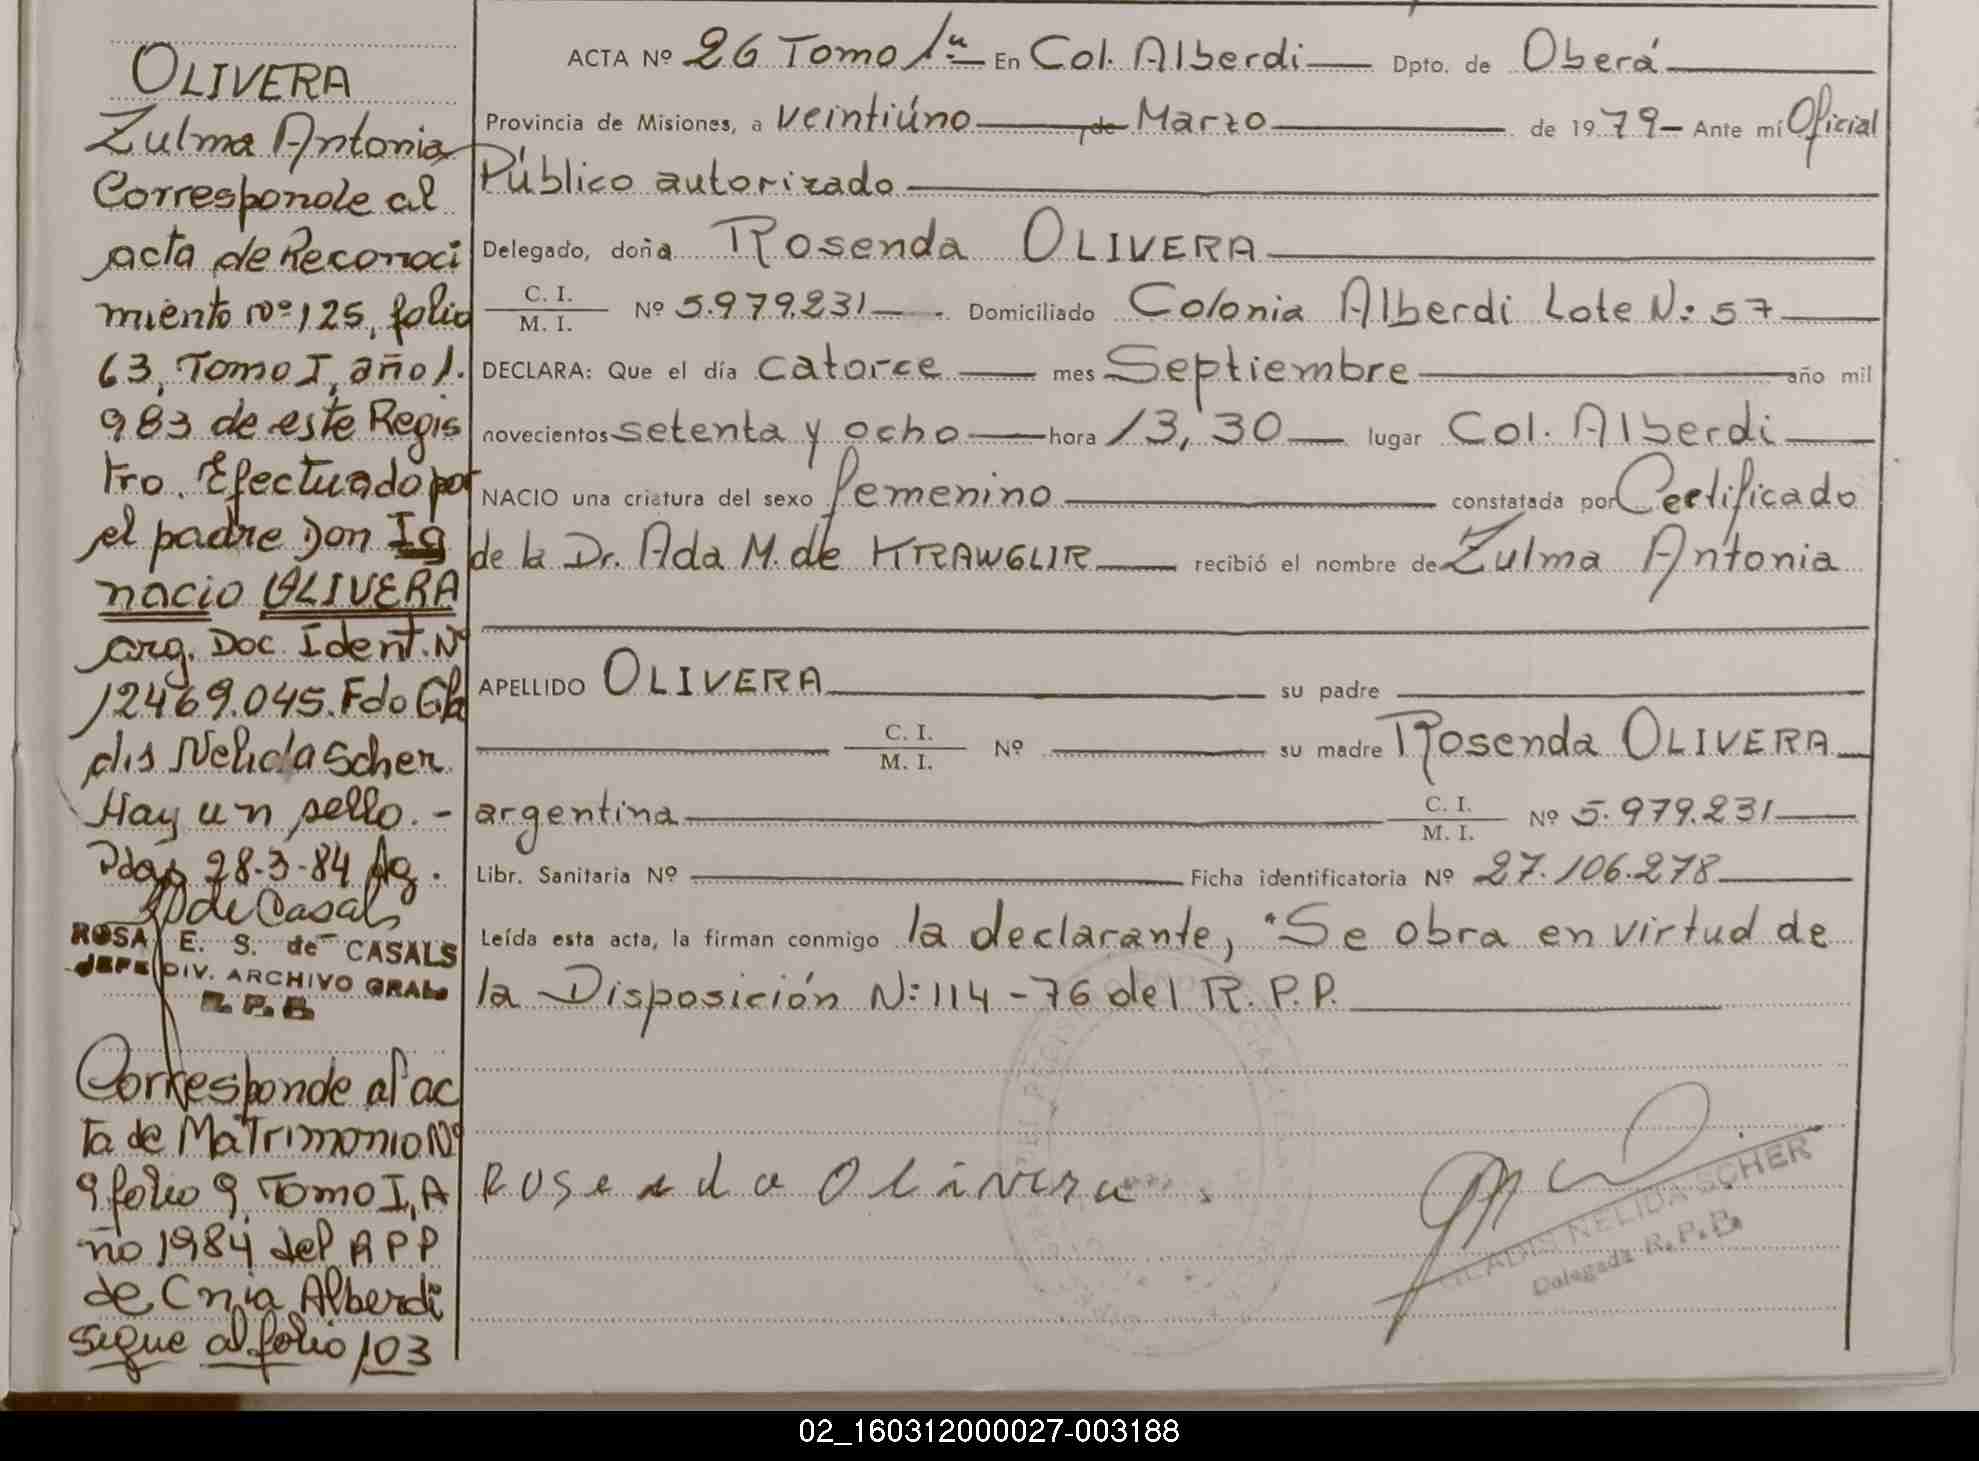 OLIVERA
Zulma Antonia
Corresponde al
acta de Reconoci
miento nº 125, folio
63, Tomo I, año 1.
983 de este Regis
tro. Efectuado por
el padre Don Ig
nacio OLIVERA
arg. Doc. Ident. Nº
12469.045. Fdo Gla
dis Nelida Scher
Hay un sello. -
Pdas 28-3-84 Ag.
de Casals
ROSA E. S. de CASALS
JEFE DIV. ARCHIVO GRAL.
R. P. P.
Corresponde al ac
ta de Matrimonio Nº
9 folio 9, Tomo I, A
ño 1984 del RPP
de Cnia Alberdi
sigue al folio 103
ACTA Nº 26 Tomo 1º En Col. Alberdi Dpto. de Oberá
Provincia de Misiones, a veintiúno de Marzo de 1979 - Ante mí Oficial
Público autorizado
Delegado, doña Rosenda OLIVERA
C. I. / M. I. Nº 5.979.231 - . Domiciliado Colonia Alberdi Lote N: 57
DECLARA: Que el día catorce mes Septiembre año mil
novecientos setenta y ocho hora 13,30 lugar Col. Alberdi
NACIO una criatura del sexo femenino constatada por Certificado
de la Dr. Ada M. de KRAWGLIR recibió el nombre de Zulma Antonia
APELLIDO OLIVERA su padre
C. I. / M. I. Nº su madre Rosenda OLIVERA
argentina C. I. / M. I. Nº 5.979.231
Libr. Sanitaria Nº Ficha identificatoria Nº 27.106.278
Leída esta acta, la firman conmigo la declarante, "Se obra en virtud de
la Disposición N: 114-76 del R. P. P.
Rosenda Olivera
GLADIS NELIDA SCHER
Delegada R. P. P.
02_160312000027-003188